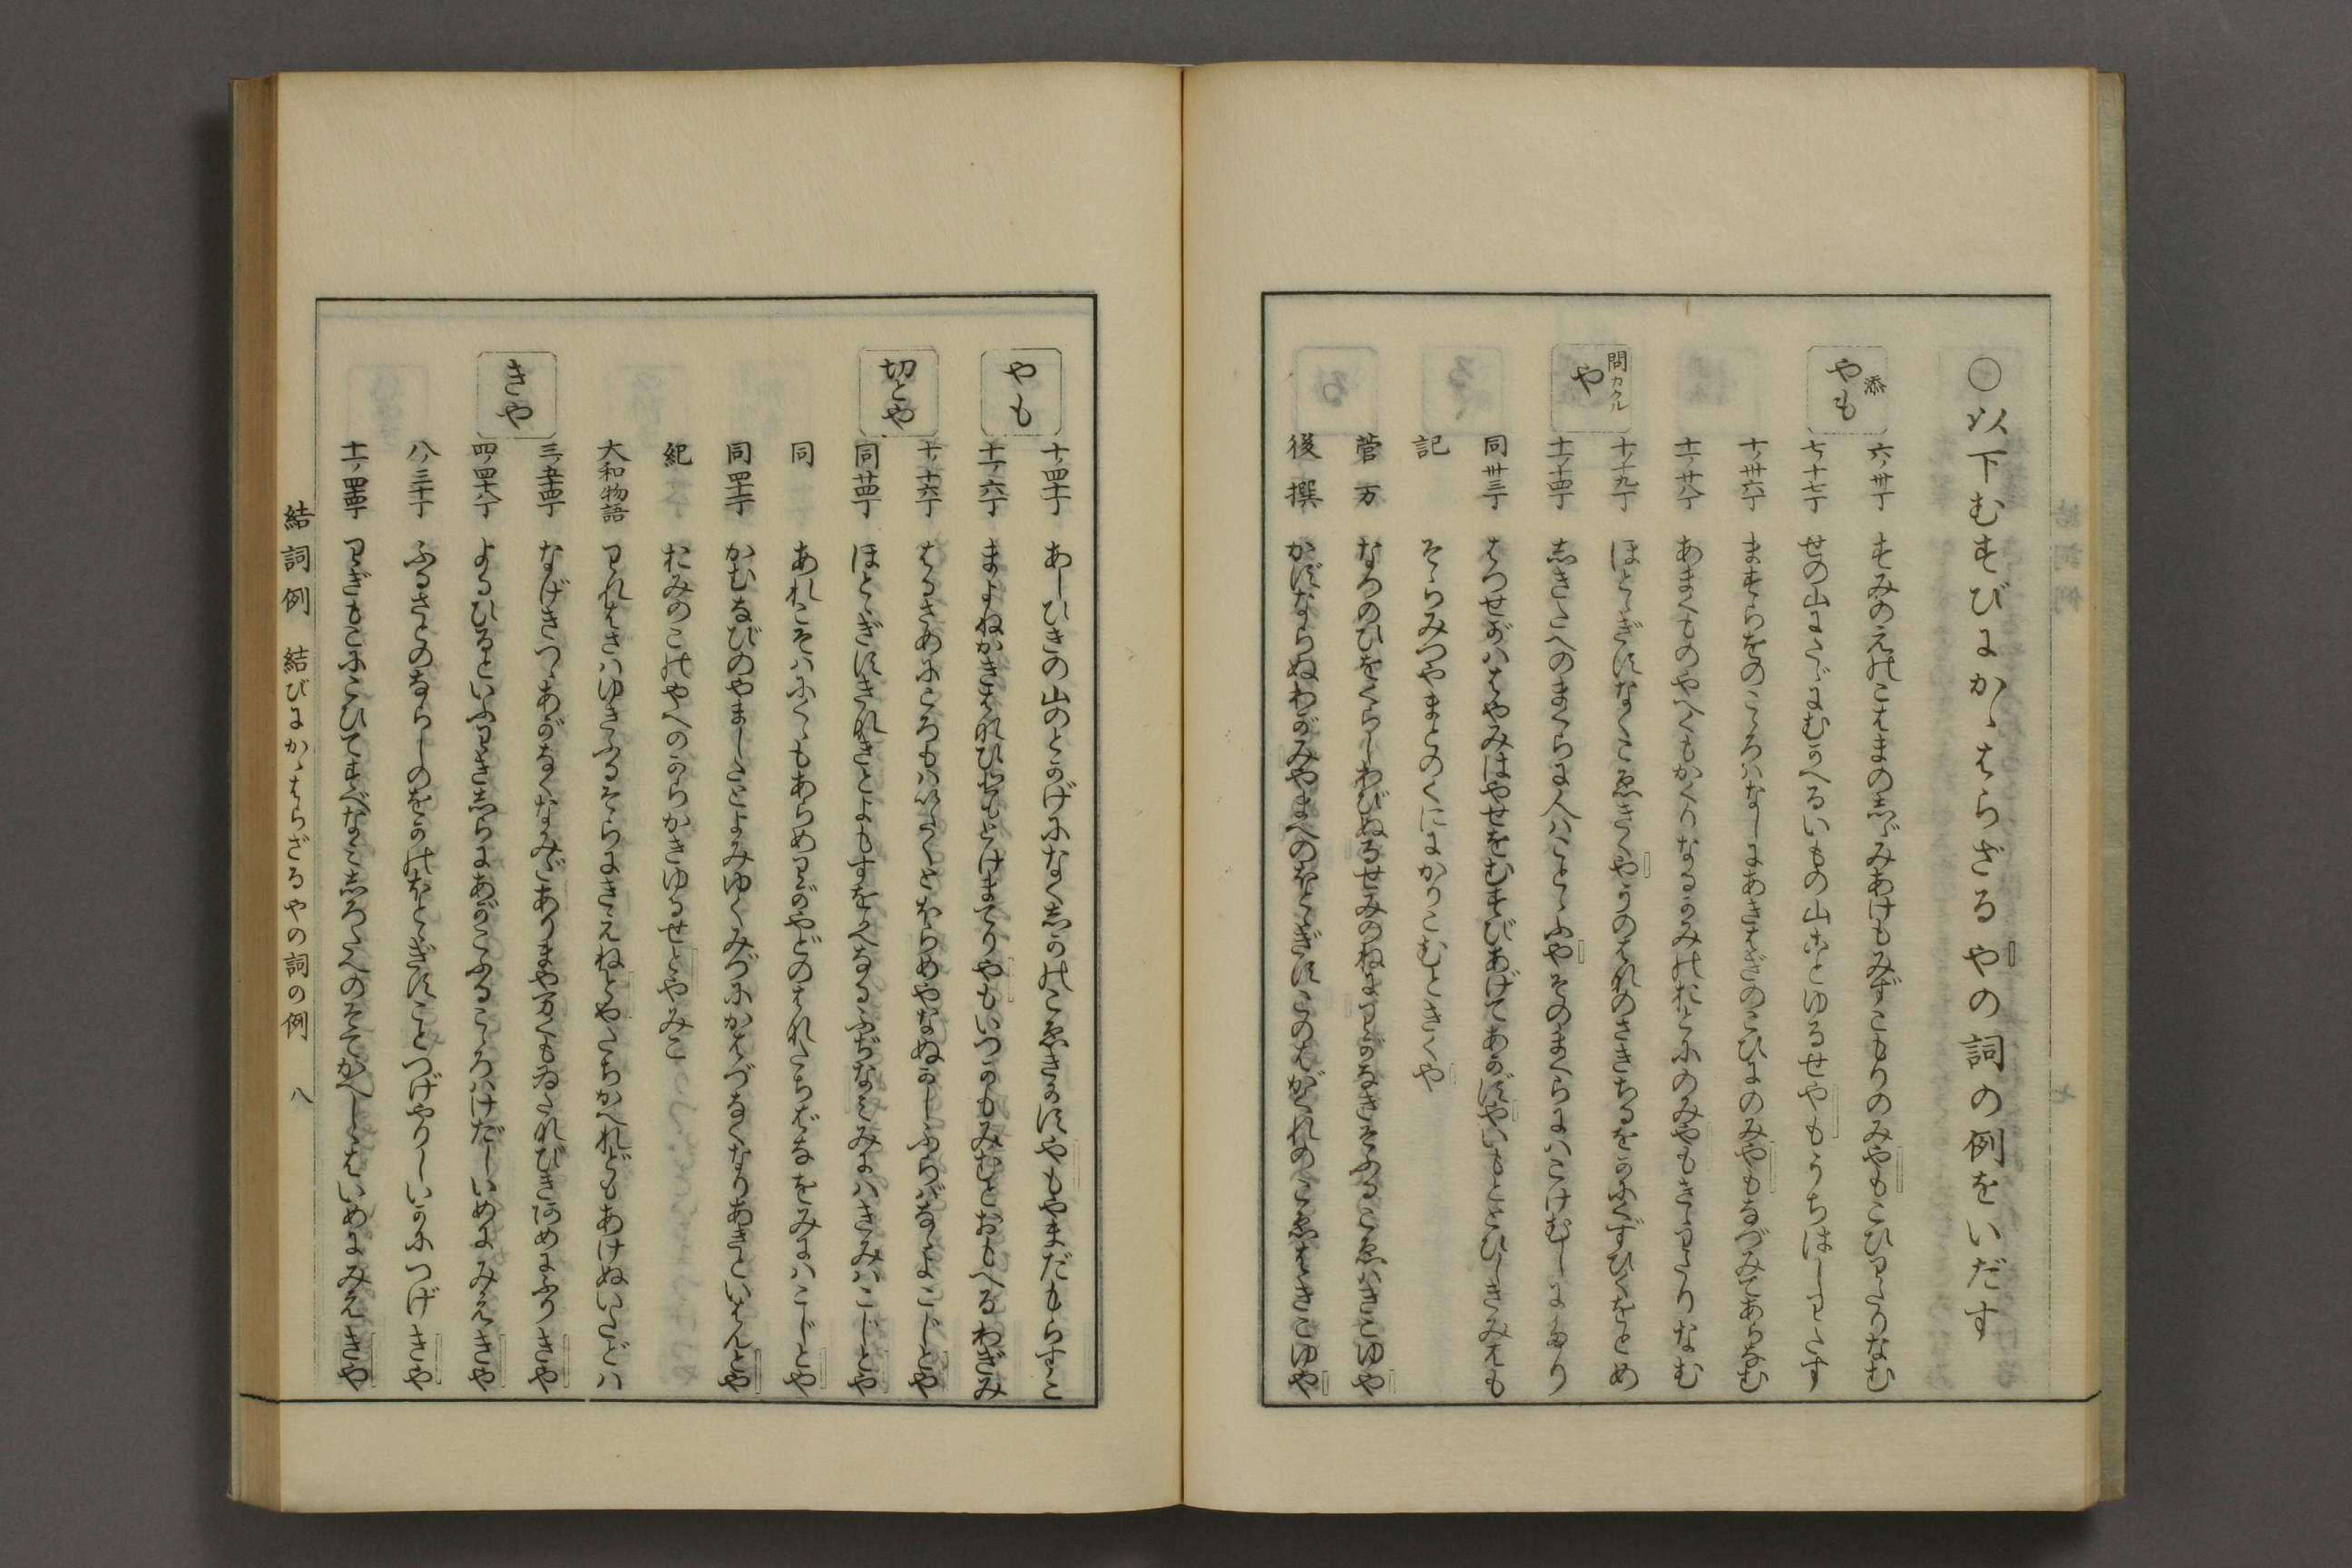 ○以下むすびにかゝはらざるやの詞の例をいだす
添 やも
六ノ卅丁 すみのえのこはまのしゞみあけもみずこもりのみやもこひわたりなむ
七ノ十七丁 せの山にたゞにむかへるいもの山ことゆるせやもうちはしわたす
十ノ卅六丁 ますらをのこゝろハなしにあきはぎのこひにのみやもなづみてあらなむ
十一ノ廿八丁 あまくものやへくもかくりなるかみのおとにのみやもきゝわたりなむ
問カクル や
十ノ十九丁 ほとゝぎすなくこゑきくやうのはなのさきちるをかにくずひくをとめ
十一ノ十四丁 しきたへのまくらに人ハことゝふやそのまくらにハこけむしにたり
同 卅三丁 はつせがハはやみはやせをむすびあげてあかずやいもとこひしきみはも
記 そらみつやまとのくににかりこむときくや
菅万 なつのひをくらしわびぬるせみのねにわがなきそふるこゑハきこゆや
後撰 かずならぬわがみやまべのほとゝぎすこのはがくれのこゑはきこゆや
やも
十ノ四十丁 あしひきの山のとかげになくしかのこゑきかすやもやまだもらすこ
十一ノ六丁 まよねかきはなひひもとけまてりやもいつかもみむとおもへるわぎみ
切とや
十ノ十六丁 はるさめにころもハいたくとほらめやなぬかしふらばなぬかこじとや
同 廿四丁 ほとゝぎすきなきとよもすをかべなるふぢなみみにハきみハこじとや
同 あれこそハにくゝもあらめわがやどのはなたちばなをみにハこじとや
同 四十一丁 かむなびのやましたとよみゆくみづにかはづなくなりあきといはんとや
紀 おみのこのやへのからかきゆるせとやみこ
大和物語 われはさハゆきふるそらにきえねとやたちかへれどもあけぬいたどハ
きや
三ノ五十四丁 なげきつゝあがなくなみだありまや万くもゐたなびきあめにふりきや
四ノ四十八丁 よるひるといふわきしらにあがこふるこゝろハけだしいめにみえきや
八ノ三十丁 ふるさとのならしのをかのほとゝぎすことつげやりしいかにつげきや
十一ノ四十四丁 わぎもこにこひてすべなみしろたへのそでかへしゝはいめにみえきや
結詞例 結びにかゝはらざるやの詞の例 八